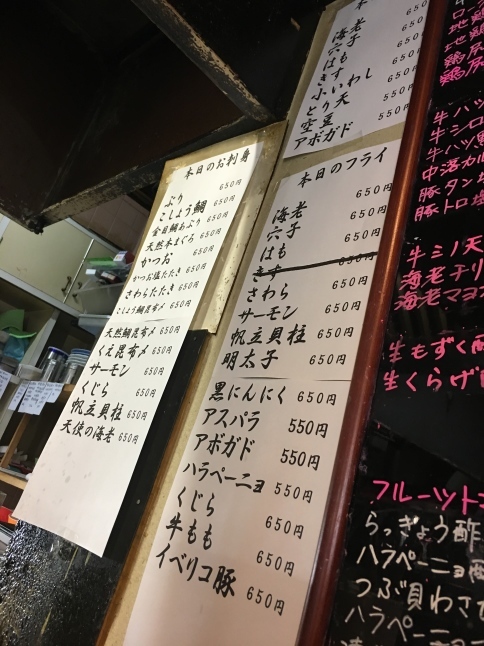 本日のお刺身
ぶり 650円
こしょう鯛 650円
金目鯛あぶり 650円
天然本まぐろ 650円
かつお 650円
かつお塩たたき 650円
さわらたたき 650円
こしょう鯛昆布〆 650円
天然鯛昆布〆 650円
くえ昆布〆 650円
サーモン 650円
くじら 650円
帆立貝柱 650円
天使の海老 650円
海老 650
穴子 650円
はも 650円
きす 650円
小いわし 550円
とり天 550円
空豆 550円
アボガド 550円
本日のフライ
海老 650円
穴子 650円
はも 650円
きす 650円
さわら 650円
サーモン 650円
帆立貝柱 650円
明太子 650円
黒にんにく 650円
アスパラ 550円
アボガド 550円
ハラペーニョ 550円
くじら 650円
牛もも 650円
イベリコ豚 650円
地鶏
地鶏
鶏尻
鶏尻
牛ハツ
牛シロ
牛ハツ
中落カル
豚タン塩
豚トロ塩
牛ミノ天
海老チリ
海老マヨ
生もずく酢
生くらげ
フルーツト
らっきょう酢
ハラペーニョ
つぶ貝わさ
ハラペーニョ